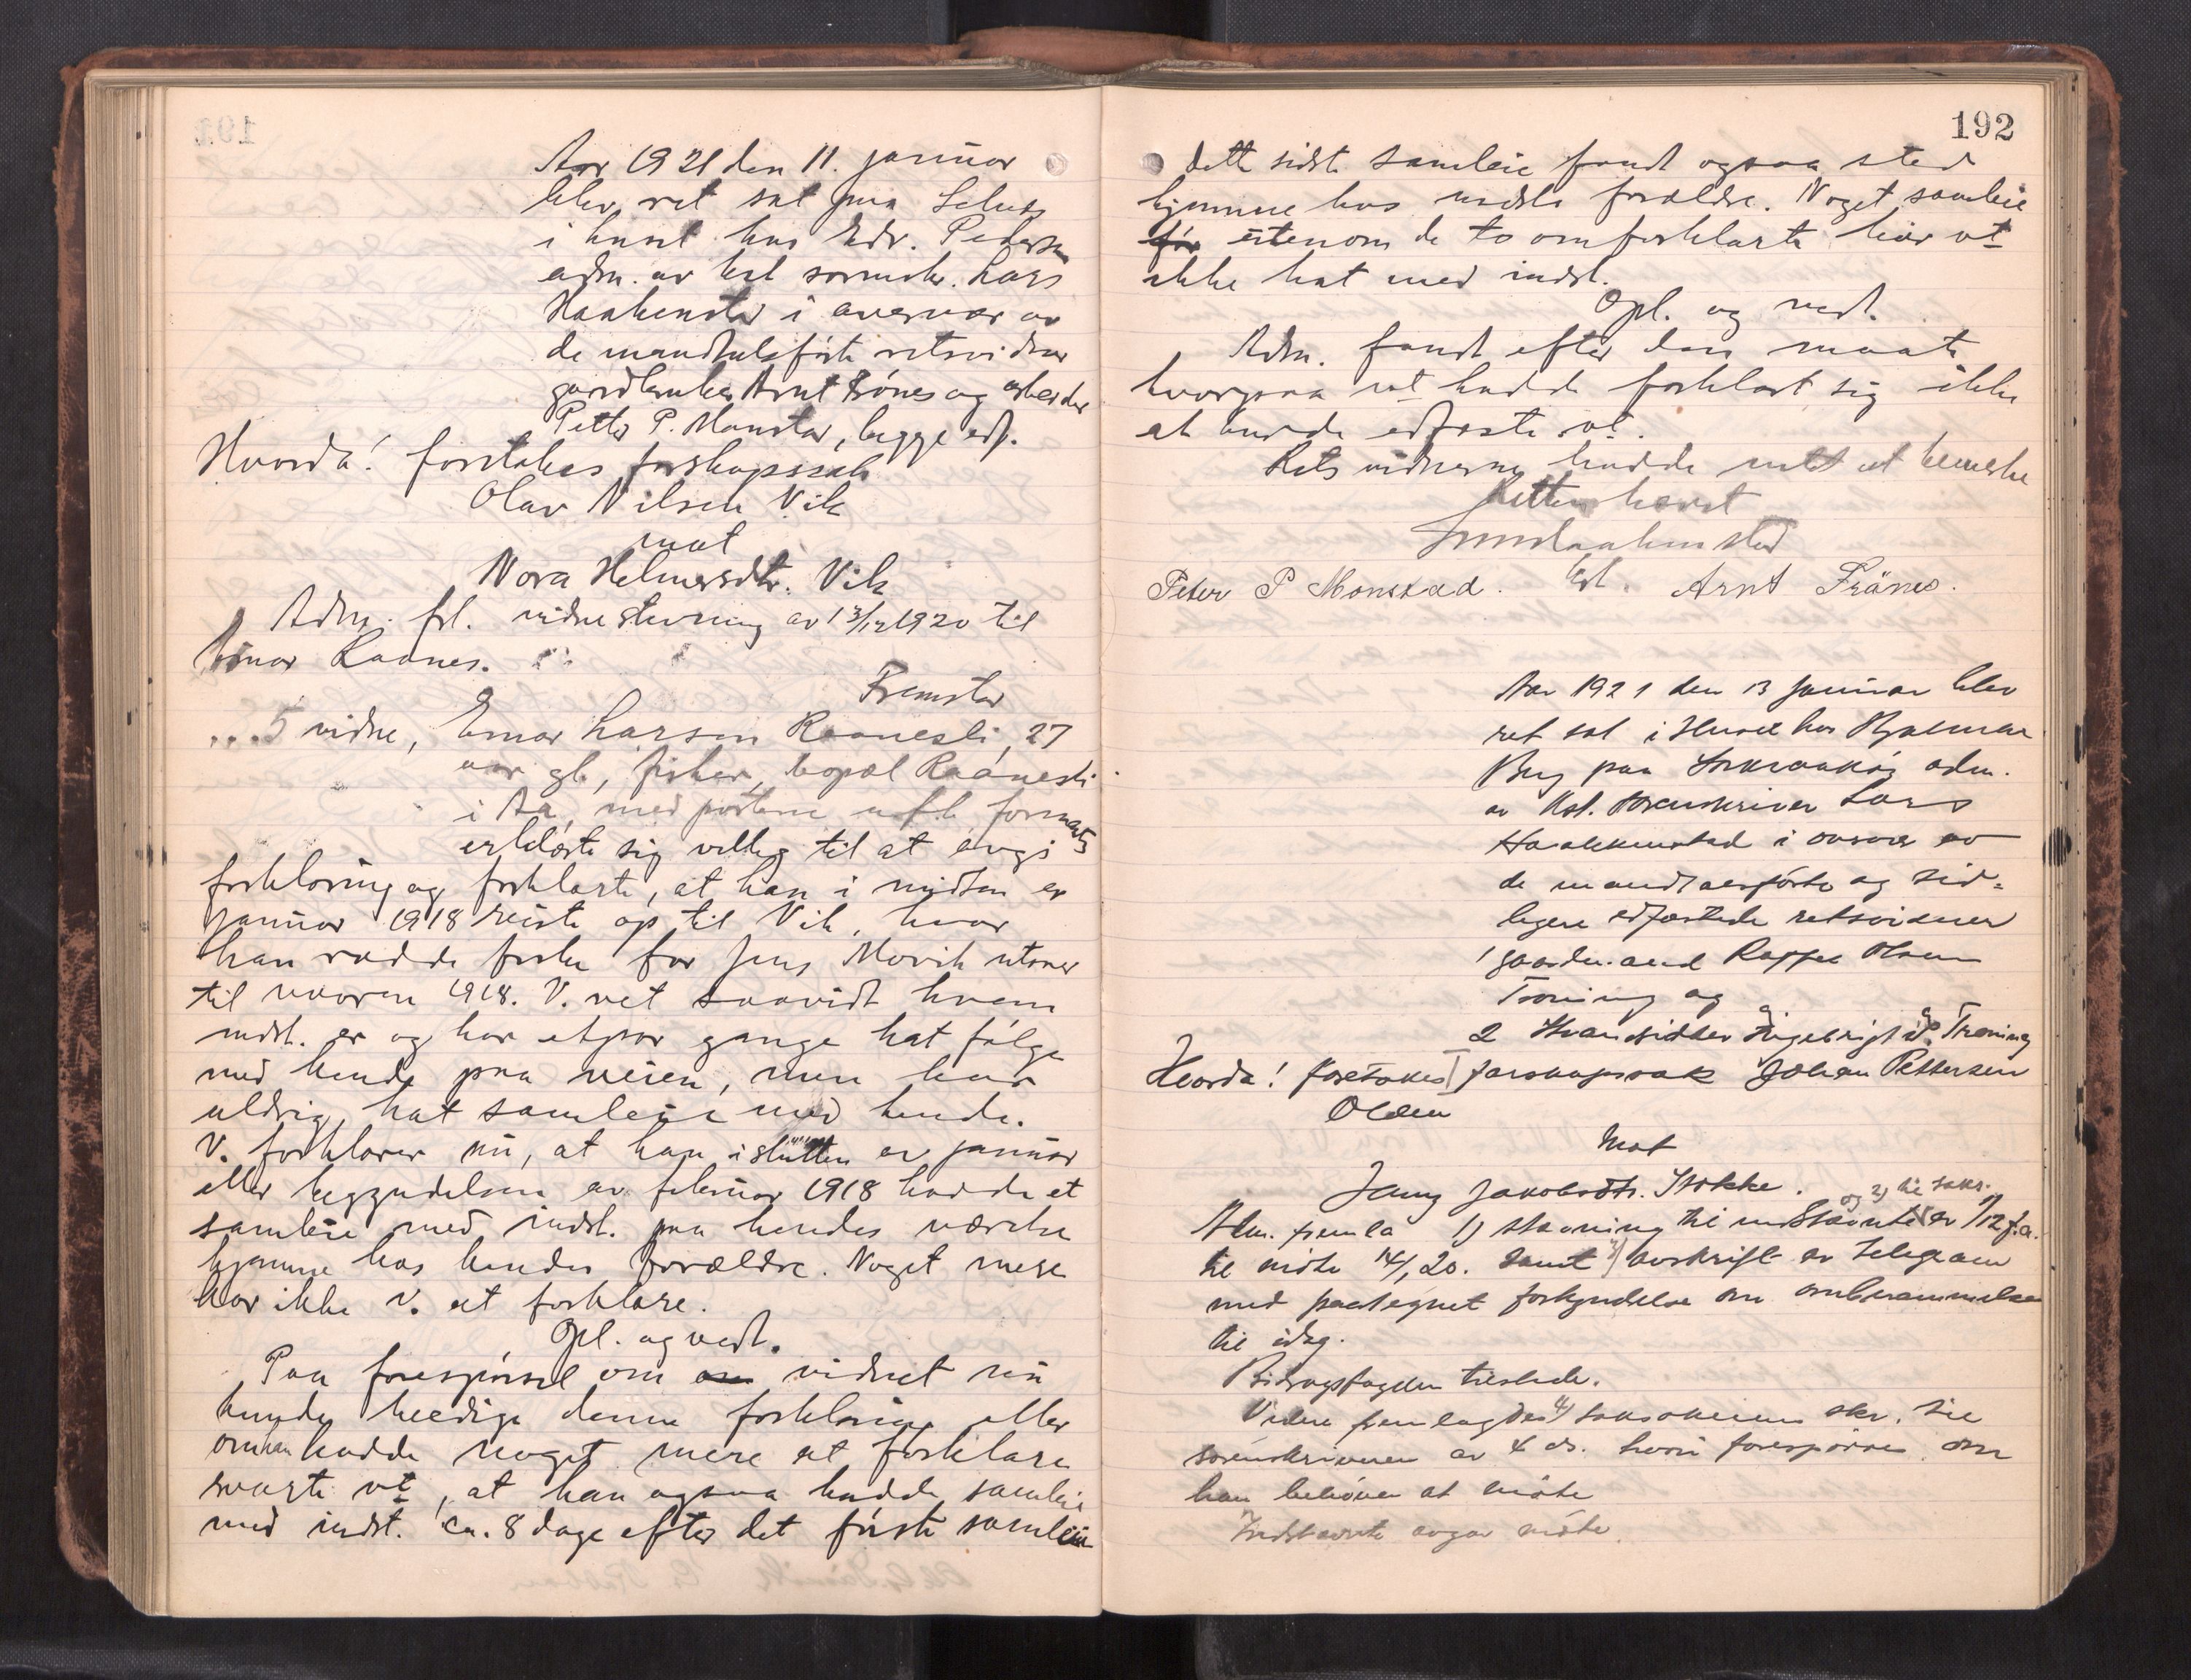 Aar 1921 den 11. januar
blev ret sat paa Selnes
i huset hos Edv. Pedersen
adm. av kst sorenskr. Lars
Haakenstad i overvær av
de mandtalsførte retsvidner
gaardbruker Arnt Frönes og arbeider
Petter P. Monstad, begge edf.
Hvorda! foretokes farskapssak
Olav Nilsen Vik
mot
Nora Helmersdtr. Vik
Adm. frl. vidnestevning av 13/12 1920 til
Einar Raanes.
Fremstod
5 vidne, Einar Larsen Raanesli, 27
aar gl., fisker, bopæl Raanesli
i Aa, med partene ubeh. formante
erklærte sig villig til at avgi
forklaring og forklarte, at han i midten av
januar 1918 reiste op til Vik, hvor
han rodde fiske for Jens Movik utover
til vaaren 1918. V. vet saavidt hvem
indst. er og har etpar gange hat følge
med hende paa veien, men har
aldrig hat samleie med hende.
V. forklarer nu, at han i slutten av januar
eller begyndelsen av februar 1918 hadde et
samleie med indst. paa hendes værelse
hjemme hos hendes forældre. Noget mere
har ikke v. at forklare.
Opl. og vedt.
Paa forespørsel om vidnet nu
kunde beedige denne forklaring eller
om han hadde noget mere at forklare
svarte vt, at han ogsaa hadde samleie
med indst. ca. 8 dage efter det første samleie
192
dette sidste samleie fandt ogsaa sted
hjemme hos indsts forældre. Noget samleie
før utenom de to omforklarte har vt
ikke hat med indst.
Opl. og vedt.
Adm. fandt efter den maate
hvorpaa vt hadde forklart sig ikke
at burde edfæste vt.
Retsvidnerne hadde intet at bemerke
Retten hævet
Lars Haakenstad
Peter P Monstad. kst. Arnt Frånes.
Aar 1921 den 13 januar blev
ret sat i Huset hos Hjalmar
Berg paa adm.
av Kst. sorenskriver Lars
Haakenstad i overvær av
de mandtalsførte og tid-
ligere edfæstede retsvidner
1 gaardmand Olsen
Troning og
2 Ingebrigt P. Troning
Hvorda! foretokes farskapssak Johan Pettersen
Olden
Mot
Jenny Jakobsdtr. Stokke.
og 2) til saks.
Adm. fremla 1) stevning til indstevnte av 1/12 f.a.
til møte 14/1 20. samt 3) avskrift av telegram
med paategnet forkyndelse om omberammelse
til idag.
Bidragsfogden tilstede.
Videre fremlagdes 4) saksøkerens skr. til
sorenskriveren av 4 ds. hvori forespørres om
han behøver at møte
Indstevnte avgav møte.